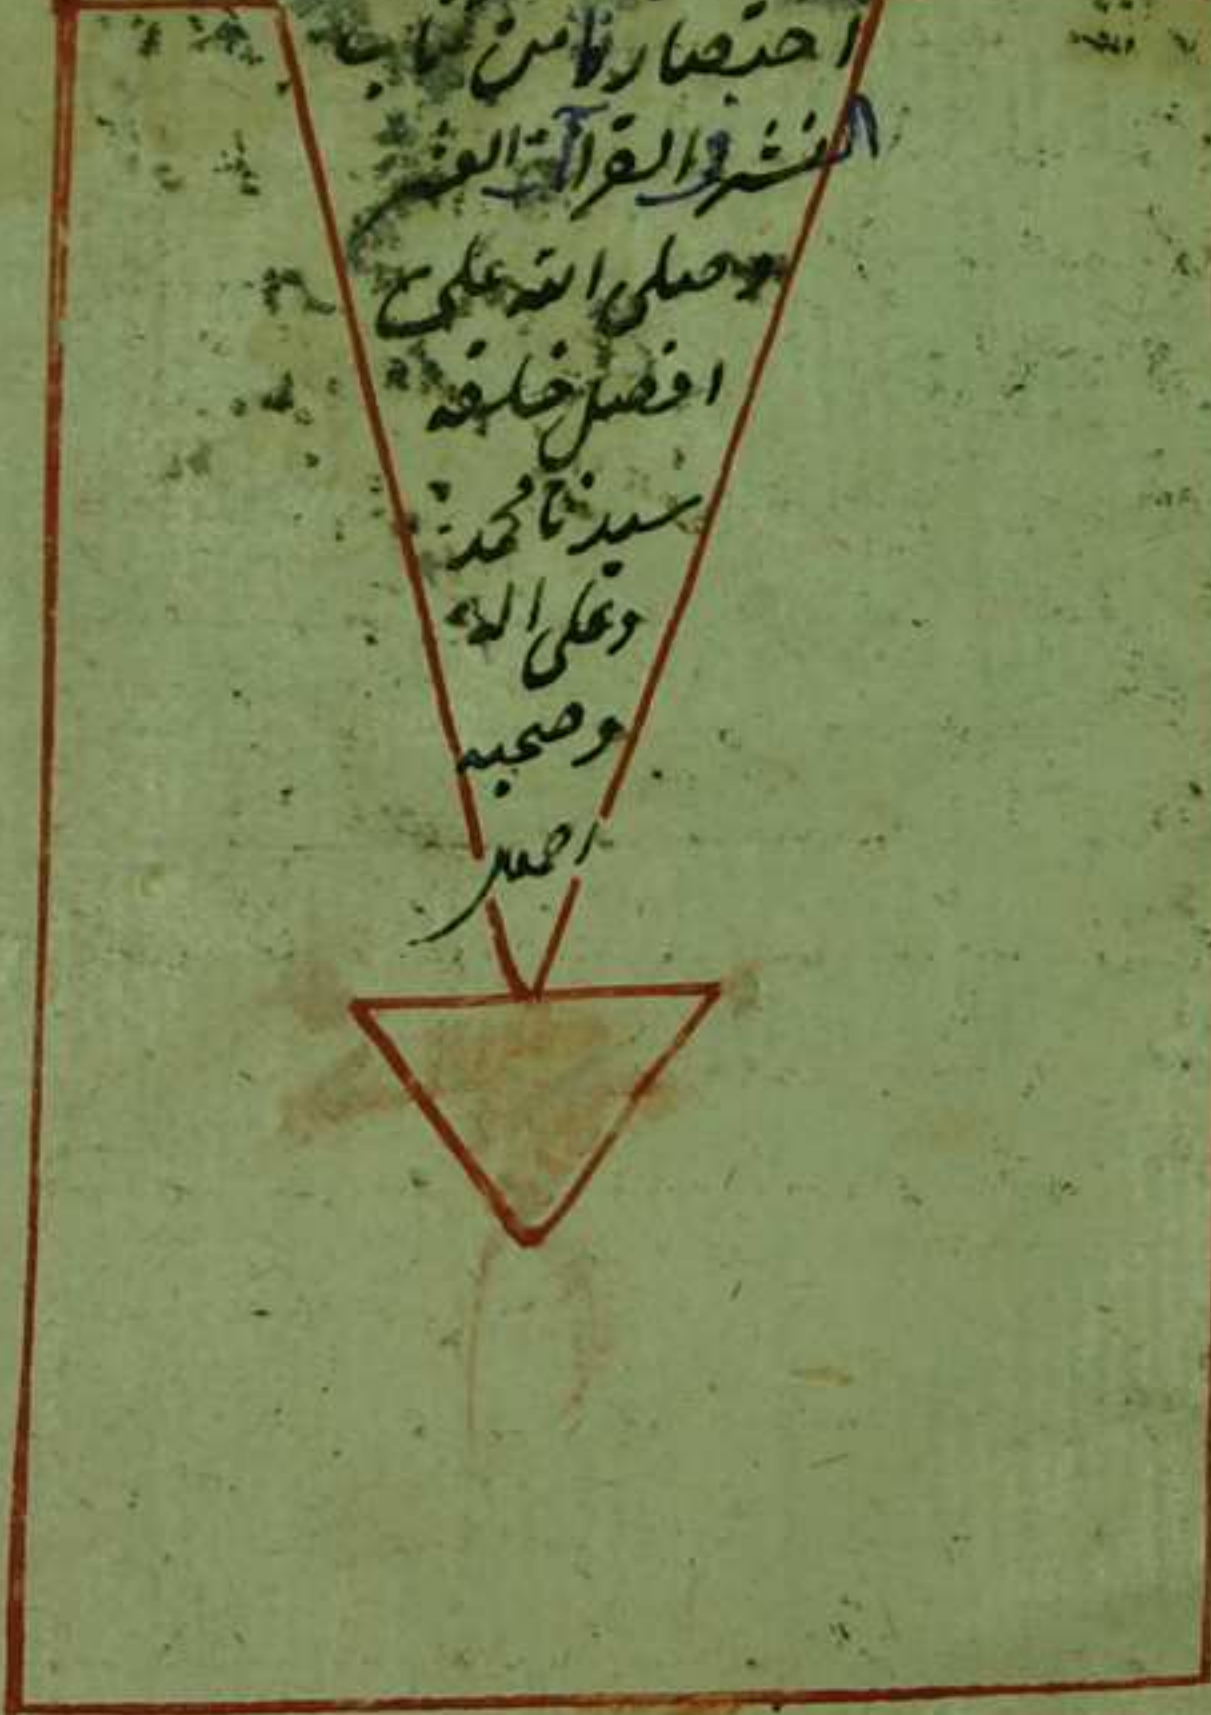 اختصارنا من كتاب
النشر في القرآت العشر
وصلى الله على
افضل خلقه
سيدنا محمد
وعلى اله
وصحبه
اجمعين